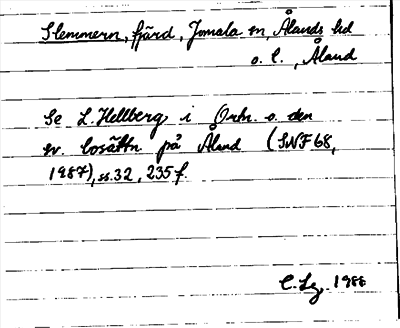 Slemmern, fjärd, Jomala sn, Ålands hd
o. l., Åland
Se L. Hellberg i Ortn. o. den
sv. bosättn på Åland (SNF 68,
1987), ss. 32, 235 f.
C. Lg. 1988